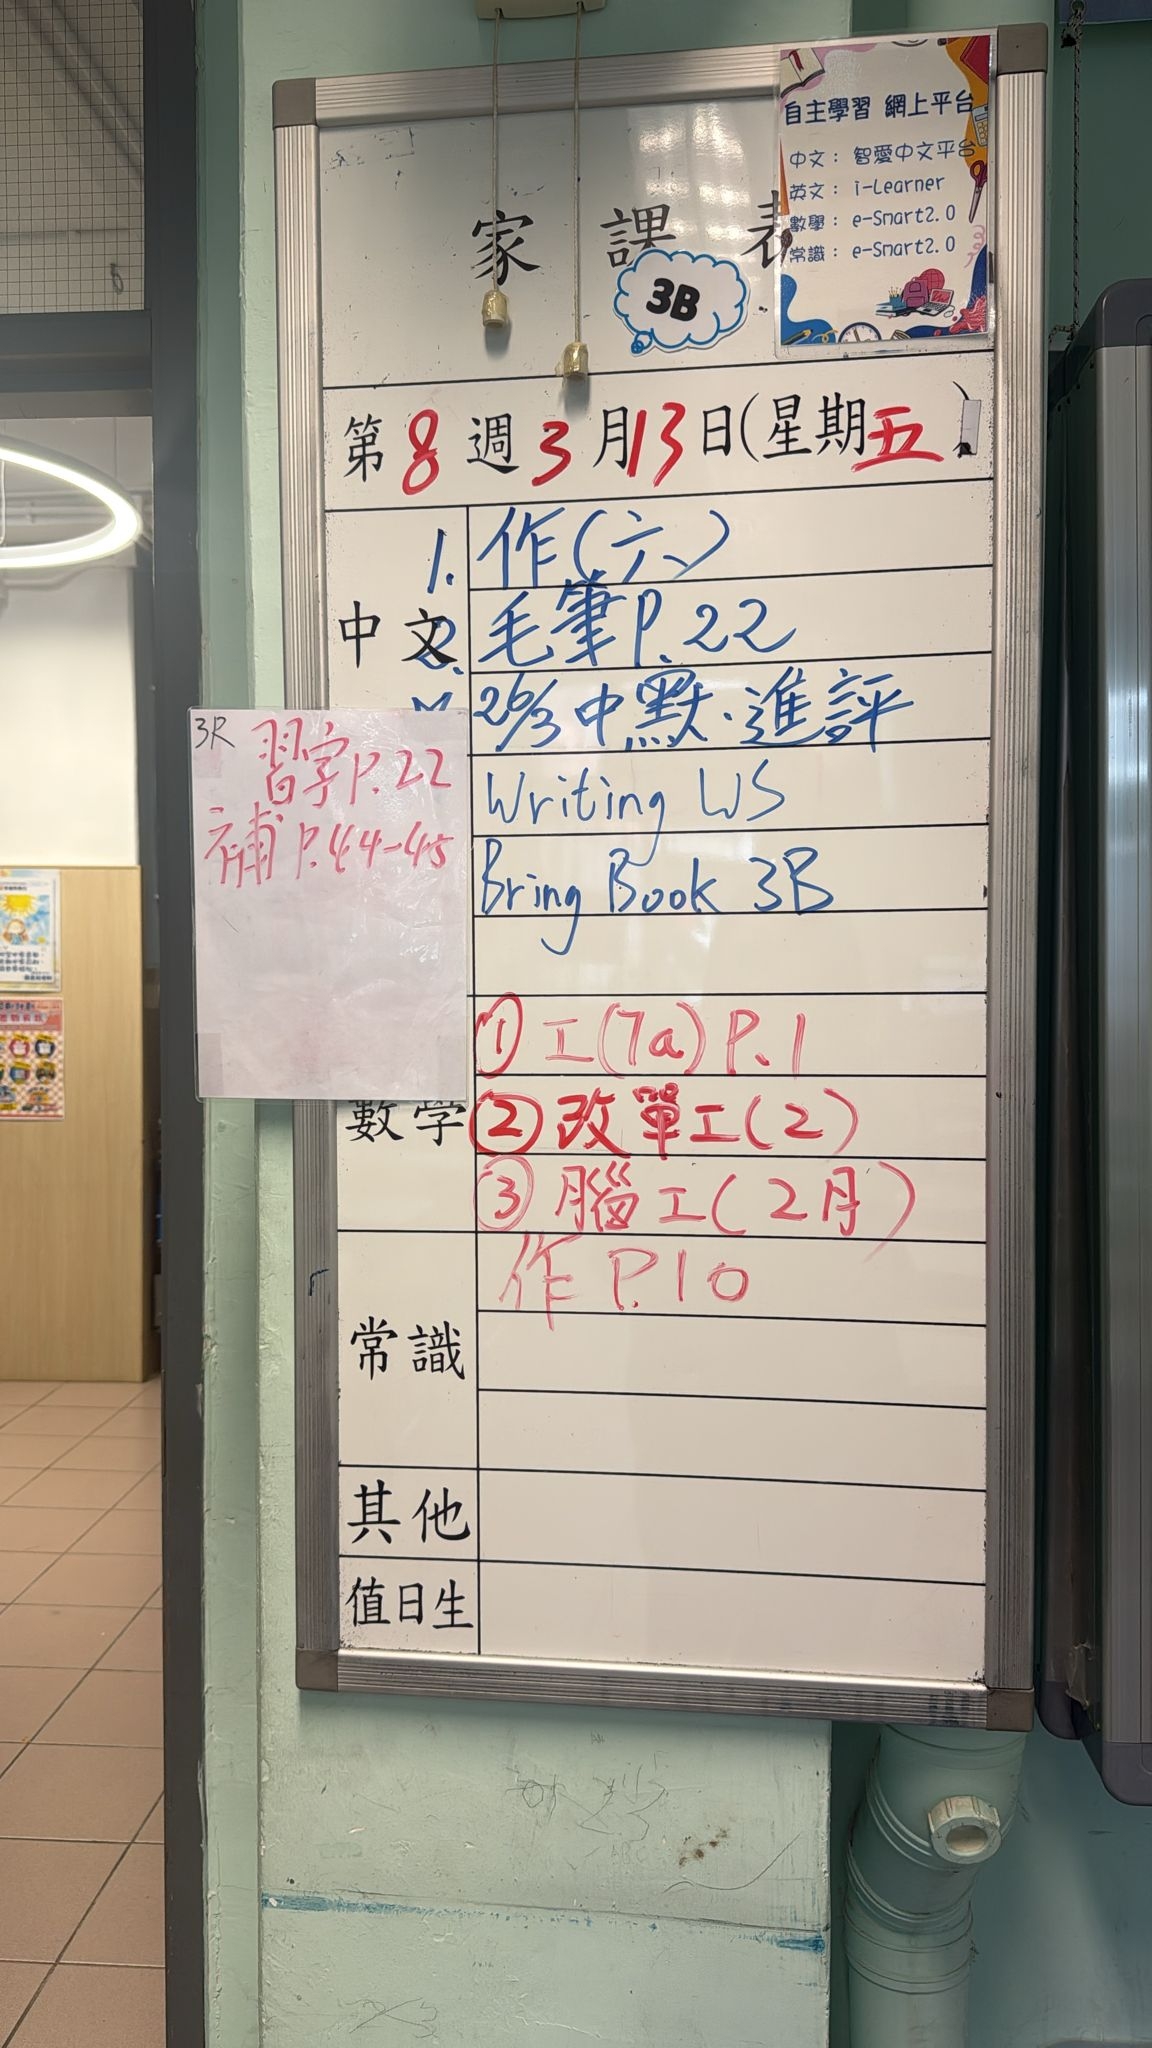 自主學習 網上平台
中文：智愛中文平台
英文：i-Learner
數學：e-Smart2.0
常識：e-Smart2.0
家課表
3B
第8週3月13日(星期五)
中文
1. 作(六)
2. 毛筆P.22
26/3中默.進評
3R
習字P.22
補P.44-45
Writing WS
Bring Book 3B
數學
① 工(7a) P.1
② 改單工(2)
③ 腦工(2月)
常識
作 P.10
其他
值日生